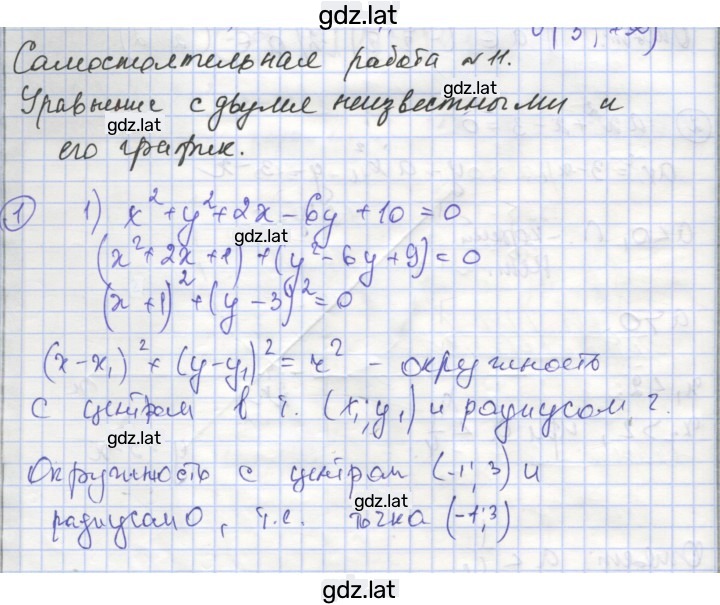 gdz.lat
Самостоятельная работа №11.
gdz.lat
Уравнение с двумя неизвестными и
gdz.lat
его график.
① 1) x² + y² + 2x - 6y + 10 = 0
gdz.lat
(x² + 2x + 1) + (y² - 6y + 9) = 0
(x + 1)² + (y - 3)² = 0
gdz.lat
(x - x₁)² + (y - y₁)² = r² - окружность
gdz.lat
с центром в т. (x₁; y₁) и радиусом r.
gdz.lat
Окружность с центром (-1; 3) и
gdz.lat
радиусом 0, т.е. точка (-1; 3)
gdz.lat